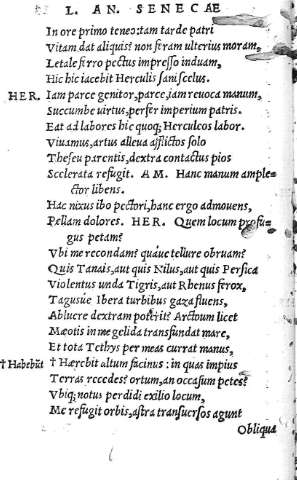 L. AN. SENECAE
In ore primo teneo: tam tarde patri
Vitam dat aliquis? non feram ulterius moram,
Letale ferro pectus impresso induam,
Hic hic iacebit Herculis sani scelus.
HER. Iam parce genitor, parce, iam reuoca manum,
Succumbe uirtus, perfer imperium patris.
Eat ad labores hic quoq; Herculeos labor.
Viuamus, artus alleua afflictos solo
Theseu parentis, dextra contactus pios
Scelerata refugit. AM. Hanc manum ample-
ctor libens.
Hac nixus ibo pectori, hanc ergo admouens,
Pellam dolores. HER. Quem locum profu-
gus petam?
Vbi me recondam? quáue tellure obruam?
Quis Tanais, aut quis Nilus, aut quis Persica
Violentus unda Tigris, aut Rhenus ferox,
Tagusue Ibera turbibus gaza fluens,
Abluere dextram poterit? Arctoum licet
Mæotis in me gelida transfundat mare,
Et tota Tethys per meas currat manus,
† Habebūt † Hærebit altum facinus: in quas impius
Terras recedes? ortum, an occasum petes?
Vbiq; notus perdidi exilio locum,
Me refugit orbis, astra transuersos agunt
Obliqua